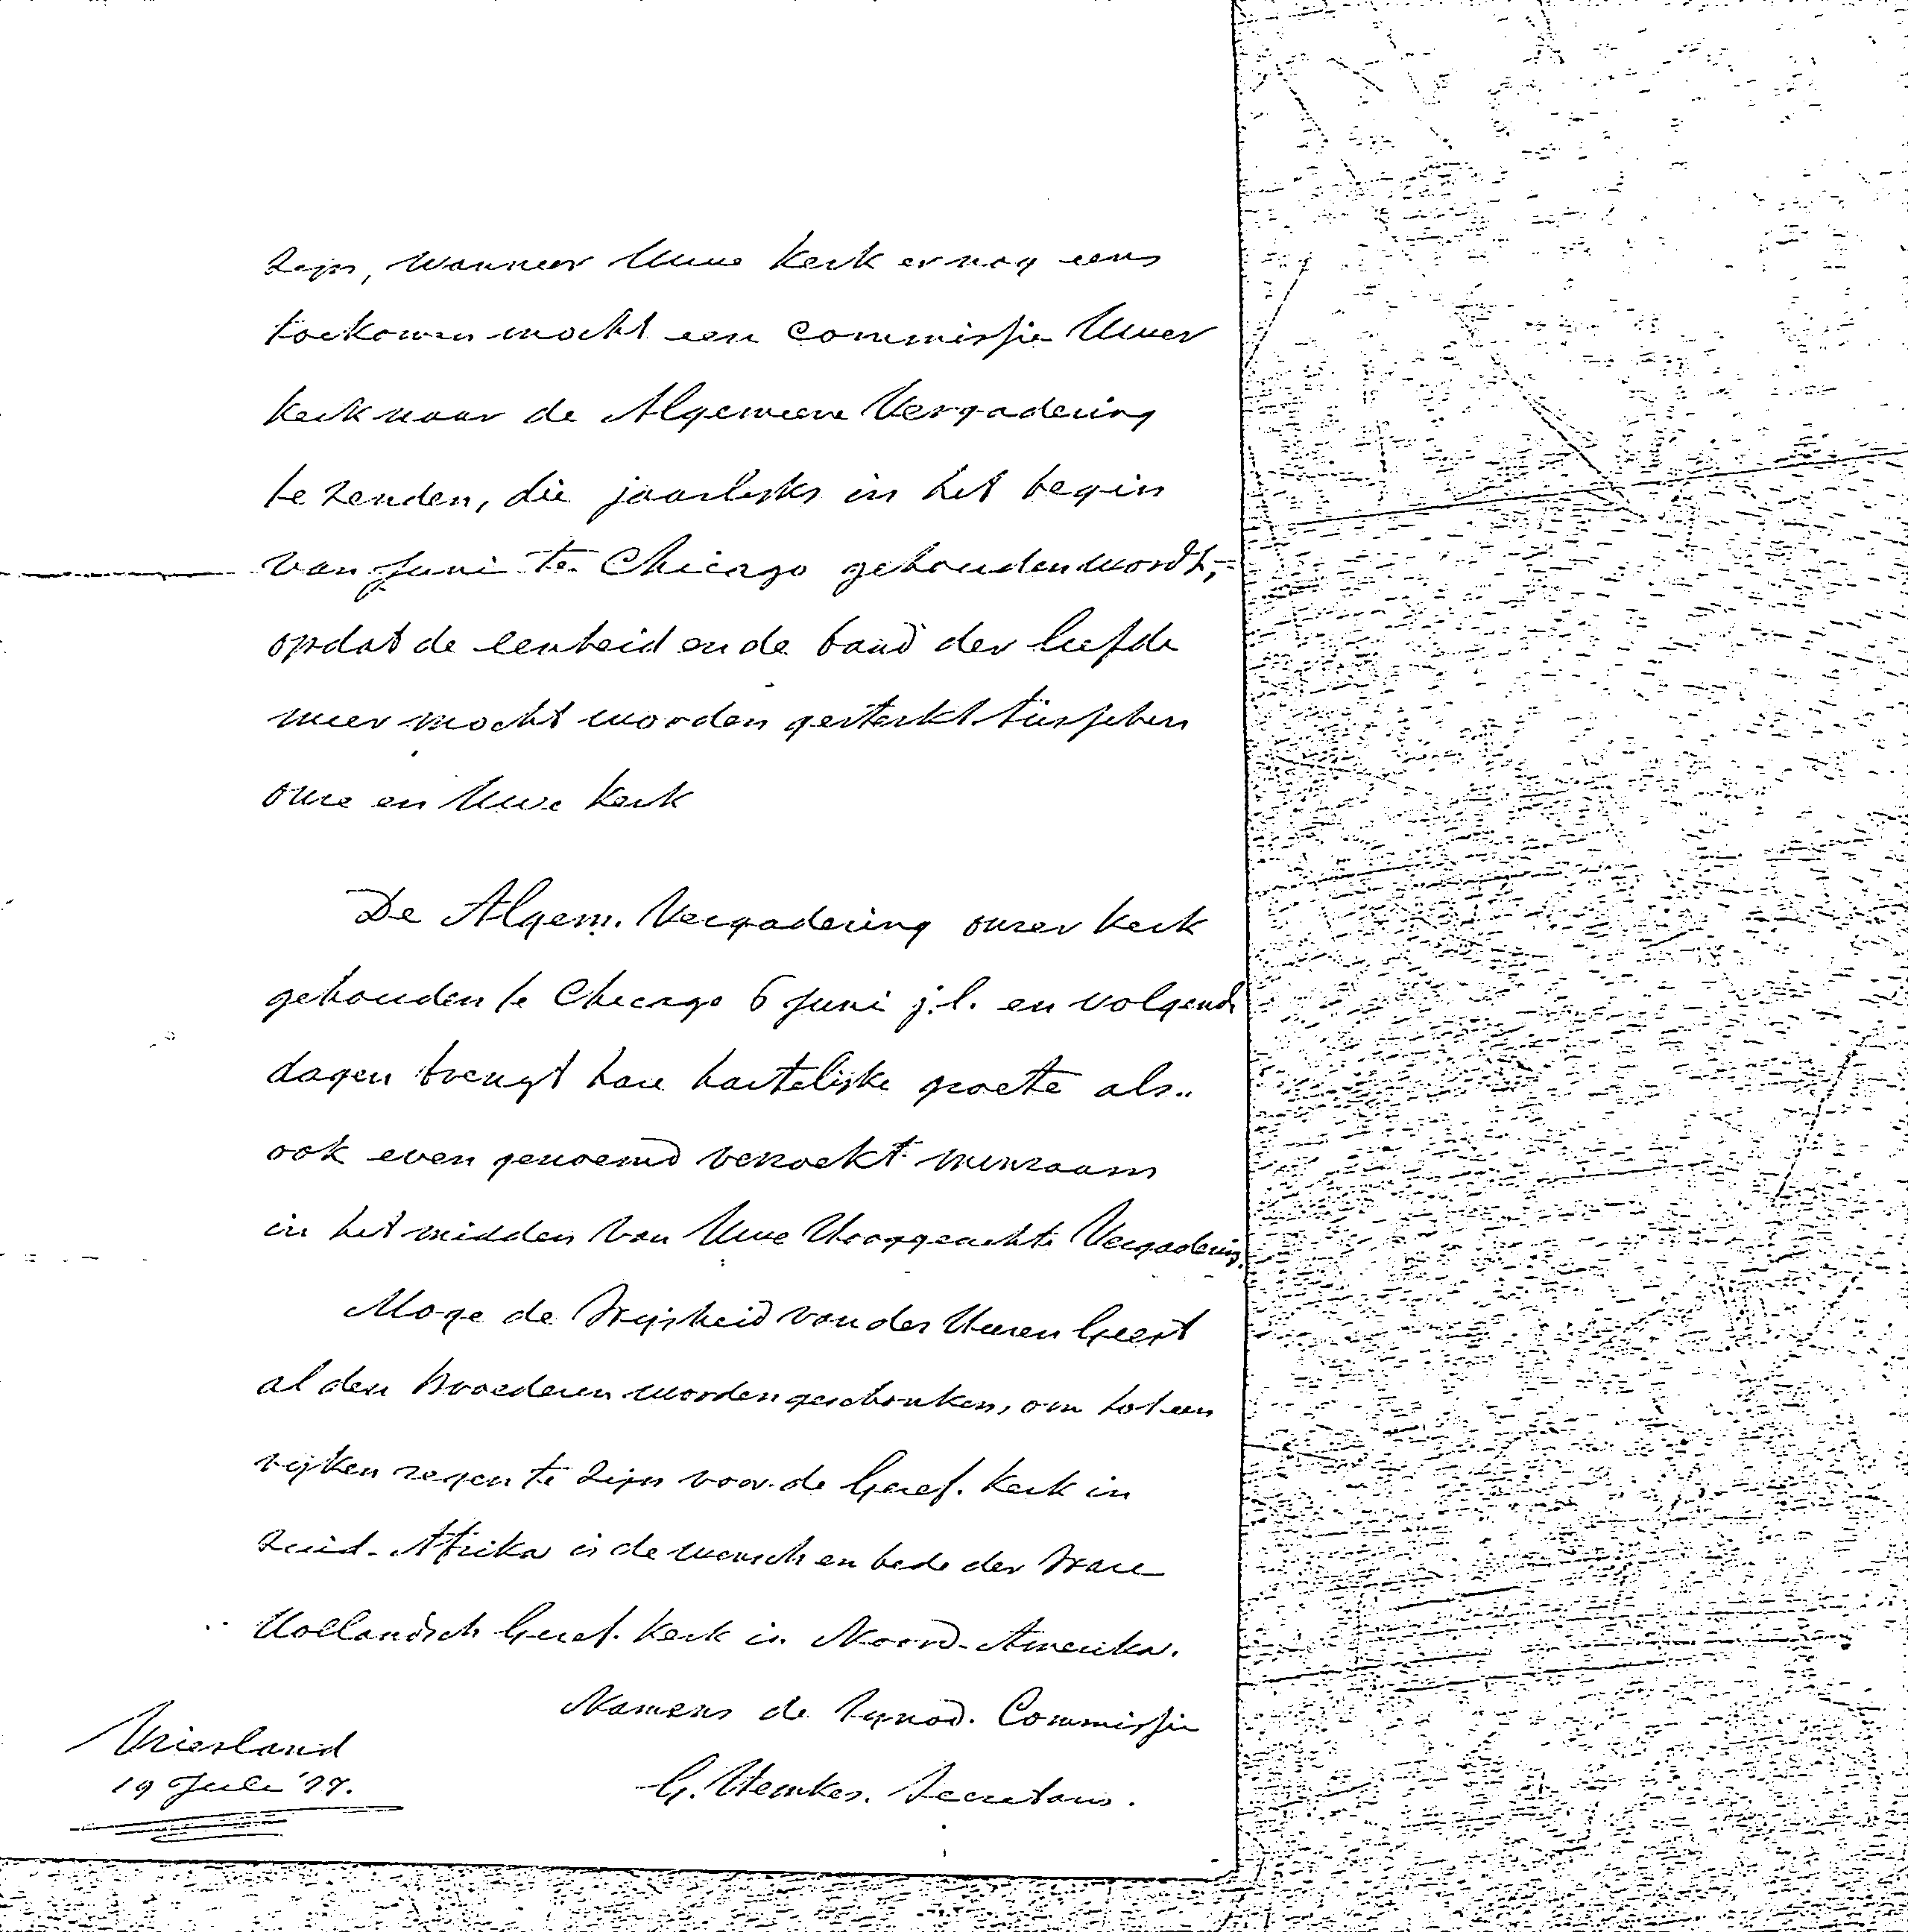 zijn, wanneer Uwe Kerk er nog eens
toekomen mocht een commissie Uwer
Kerk naar de Algemeene Vergadering
te zenden, die jaarlijks in het begin
van Juni te Chicago gehouden wordt,
opdat de eenheid en de band der liefde
meer mocht worden gesterkt tusschen
onze en Uwe Kerk
De Algem. Vergadering onzer Kerk
gehouden te Chicago 6 Juni j.l. en volgende
dagen brengt hare hartelijke groete als
ook even genoemd verzoekt minzaam
in het midden van Uwe Hooggeachte Vergadering.
Moge de Wijsheid van des Heeren Geest
al den Broederen worden geschonken, om tot een
rijken zegen te zijn voor de Geref. Kerk in
Zuid-Afrika is de wensch en bede der Ware
Hollandsch Geref. Kerk in Noord-Amerika.
Namens de Synod. Commissie
G. Hemkes. Secretaris.
Vriesland
19 Juli '77.